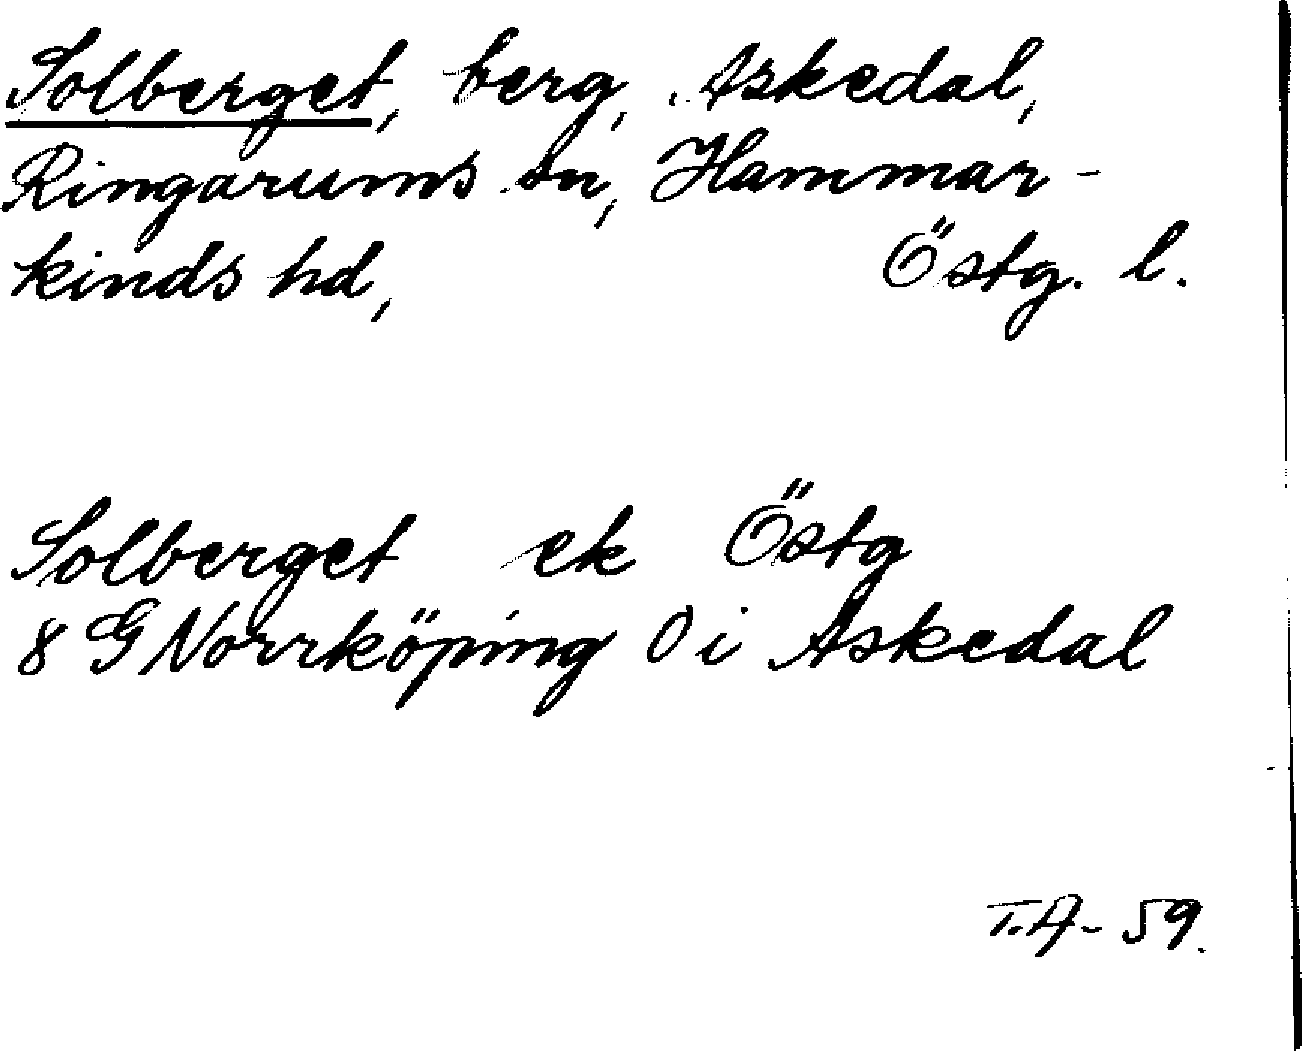 Solberget, berg, Askedal,
Ringarums sn, Hammar-
kinds hd, Östg. l.
Solberget ek Östg
8 G Norrköping O i Askedal
T.A- 59.